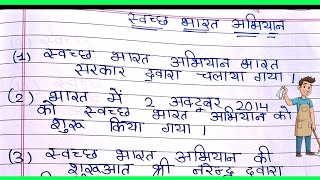 स्वच्छ भारत अभियान
(1) स्वच्छ भारत अभियान भारत
सरकार द्वारा चलाया गया ।
(2) भारत में 2 अक्टूबर 2014
को स्वच्छ भारत अभियान को
शुरू किया गया ।
(3) स्वच्छ भारत अभियान की
शुरूआत श्री नरेन्द्र द्वारा